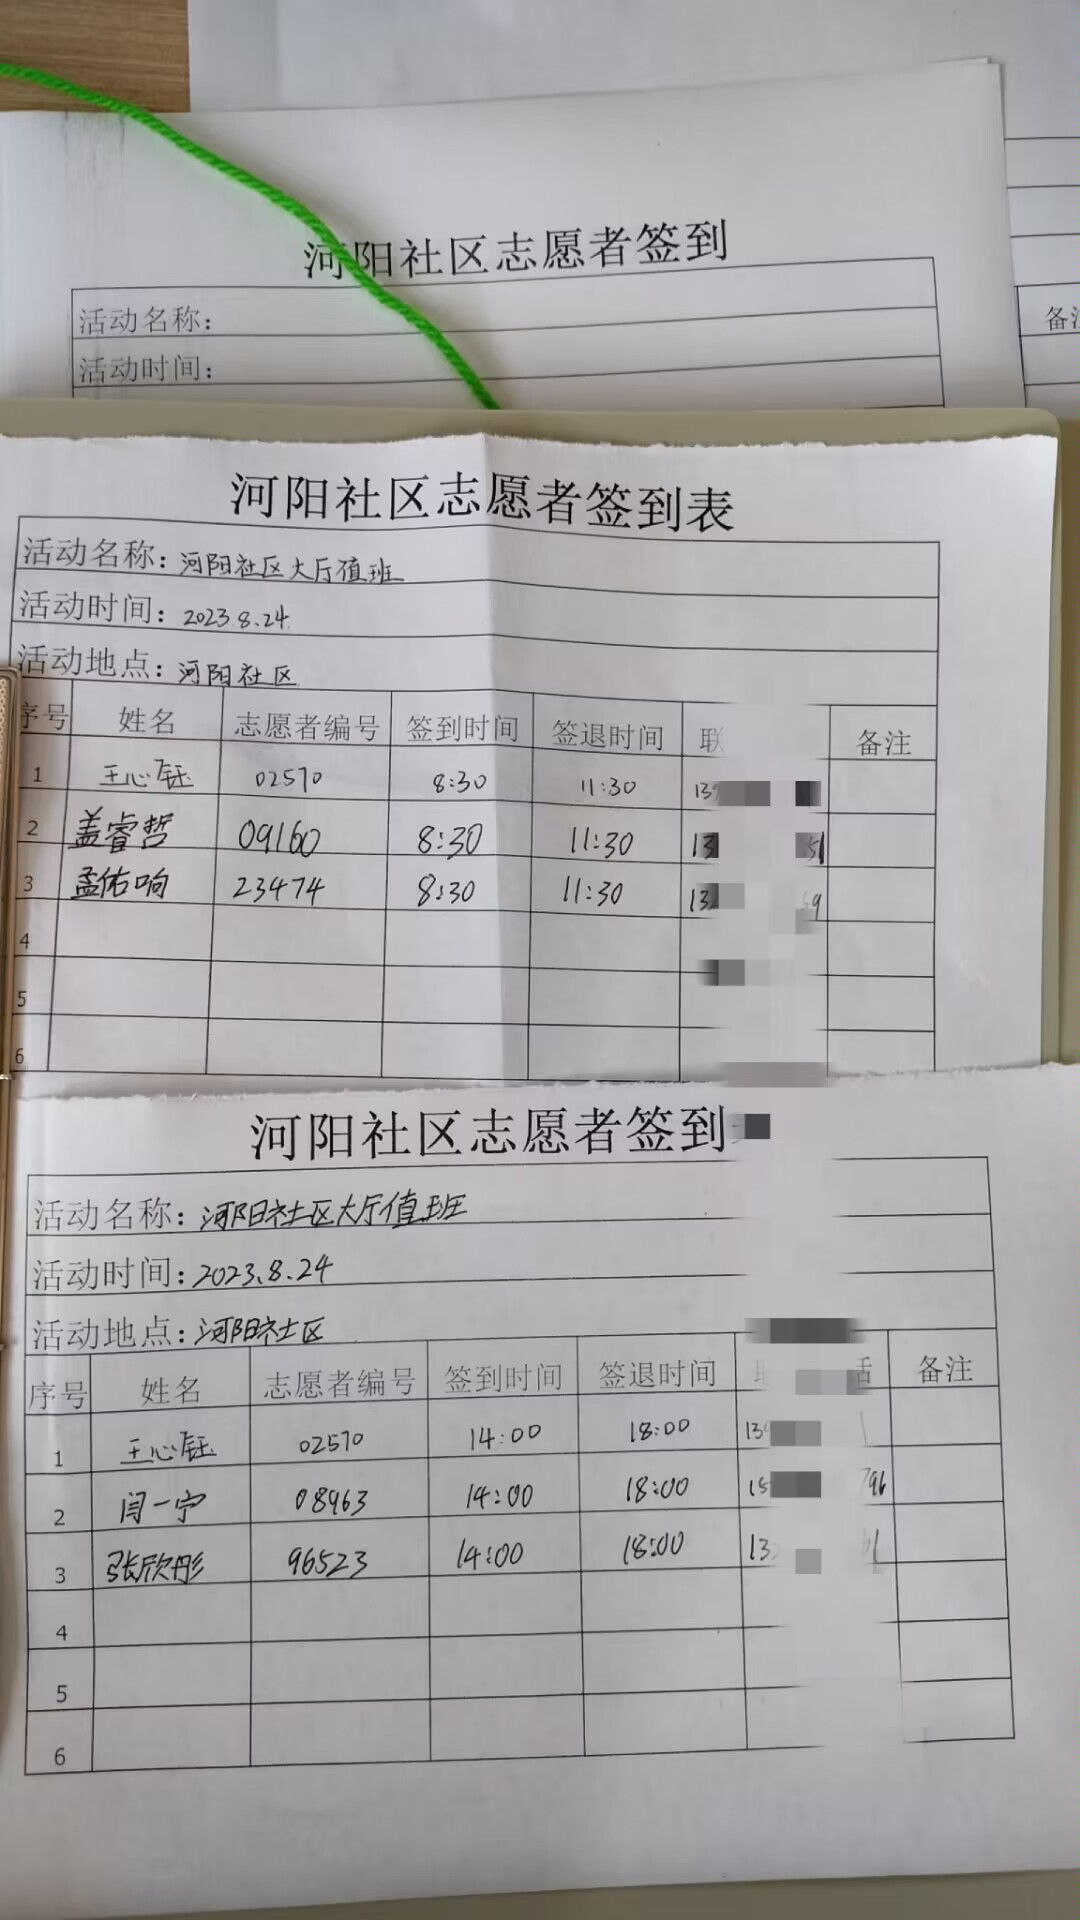 河阳社区志愿者签到
活动名称：
活动时间：
备
河阳社区志愿者签到表
活动名称：河阳社区大厅值班
活动时间：2023.8.24.
活动地点：河阳社区
序号 姓名 志愿者编号 签到时间 签退时间 联 备注
1 王心钰 02570 8:30 11:30 139
2 盖睿哲 09160 8:30 11:30 13 51
3 孟佑响 23474 8:30 11:30 13 69
4
5
6
河阳社区志愿者签到
活动名称：河阳社区大厅值班
活动时间：2023.8.24
活动地点：河阳社区
序号 姓名 志愿者编号 签到时间 签退时间 话 备注
1 王心钰 02570 14:00 18:00 139
2 闫一宁 08963 14:00 18:00 15 796
3 张欣彤 96523 14:00 18:00 13
4
5
6